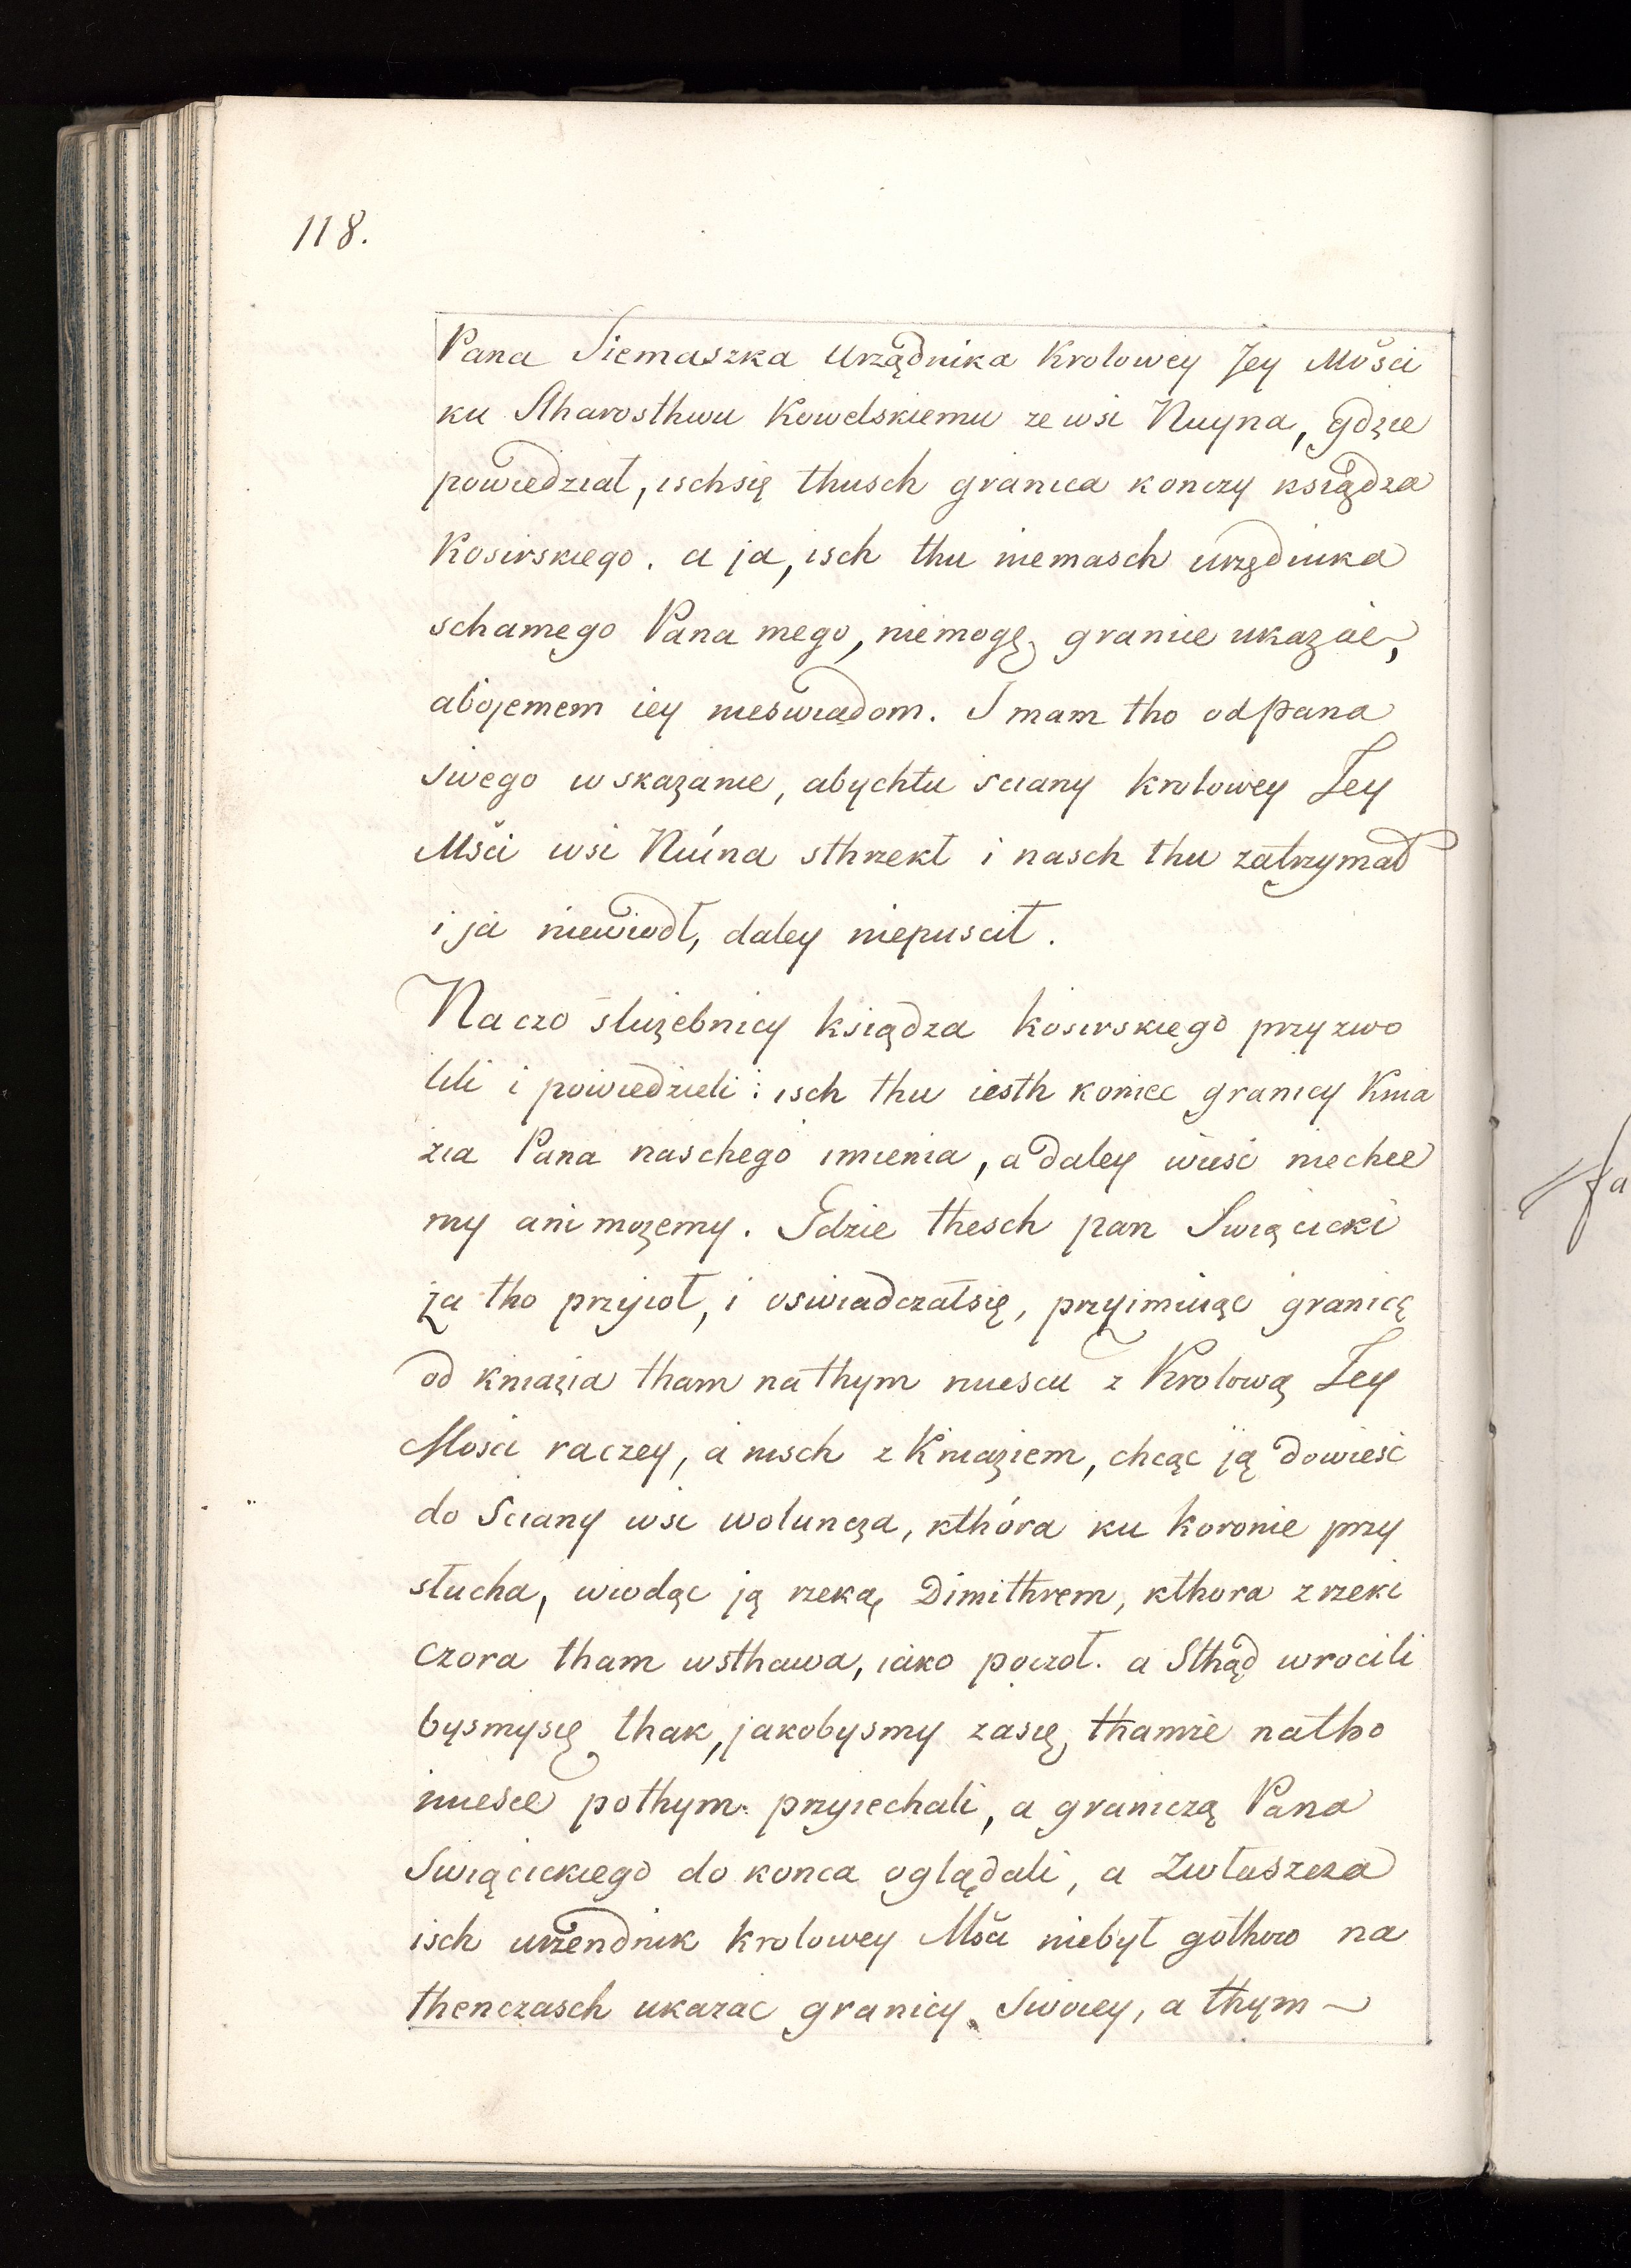 118.
Pana Siemaszka Urządnika Krolowey Jey Mości
ku Stharosthwu Kowelskiemu ze wsi Nuyna, gdzie
powiedział, ischsię thusch granica konczy książdza
Kosirskiego. a ja, isch thu niemasch urzędnika
schamego Pana mego, niemogę granice ukazać,
abojemem iey nieswiadom. I mam tho odpana
swego wskazanie, abychtu sciany krolowey Jey
Mści wsi Nuina sthrzekł i nasch thu zatrzymał
i ja niewiodł, daley niepuscił.
Naczo służebnicy książdza kosirskiego przyzwo
lili i powiedzieli: isch thu iesth koniec granicy Knia
zia Pana naschego imienia, a daley wieść niechce
my ani możemy. Gdzie thesch pan Swiącicki
ja tho przyioł, i oswiadczałsię, przyimuiąc granicę
od kniazia tham nathym miescu z Krolową Jey
Mosci raczey, a nisch z Kniaziem, chcąc ją dowieść
do Sciany wsi woluncza, kthóra ku koronie przy
słucha, wiodąc ją rzeką Dimithrem, kthora z rzeki
czora tham wsthawa, iako poczoł. a Sthąd wrocili
bysmysię thak, jakobysmy zasię thamże natho
miesce pothym przyiechali, a graniczą Pana
Swiącickiego do konca oglądali, a Zwłaszcza
isch urzendnik krolowey Mści niebył gothow na
thenczasch ukazac granicy Swoiey, a thym